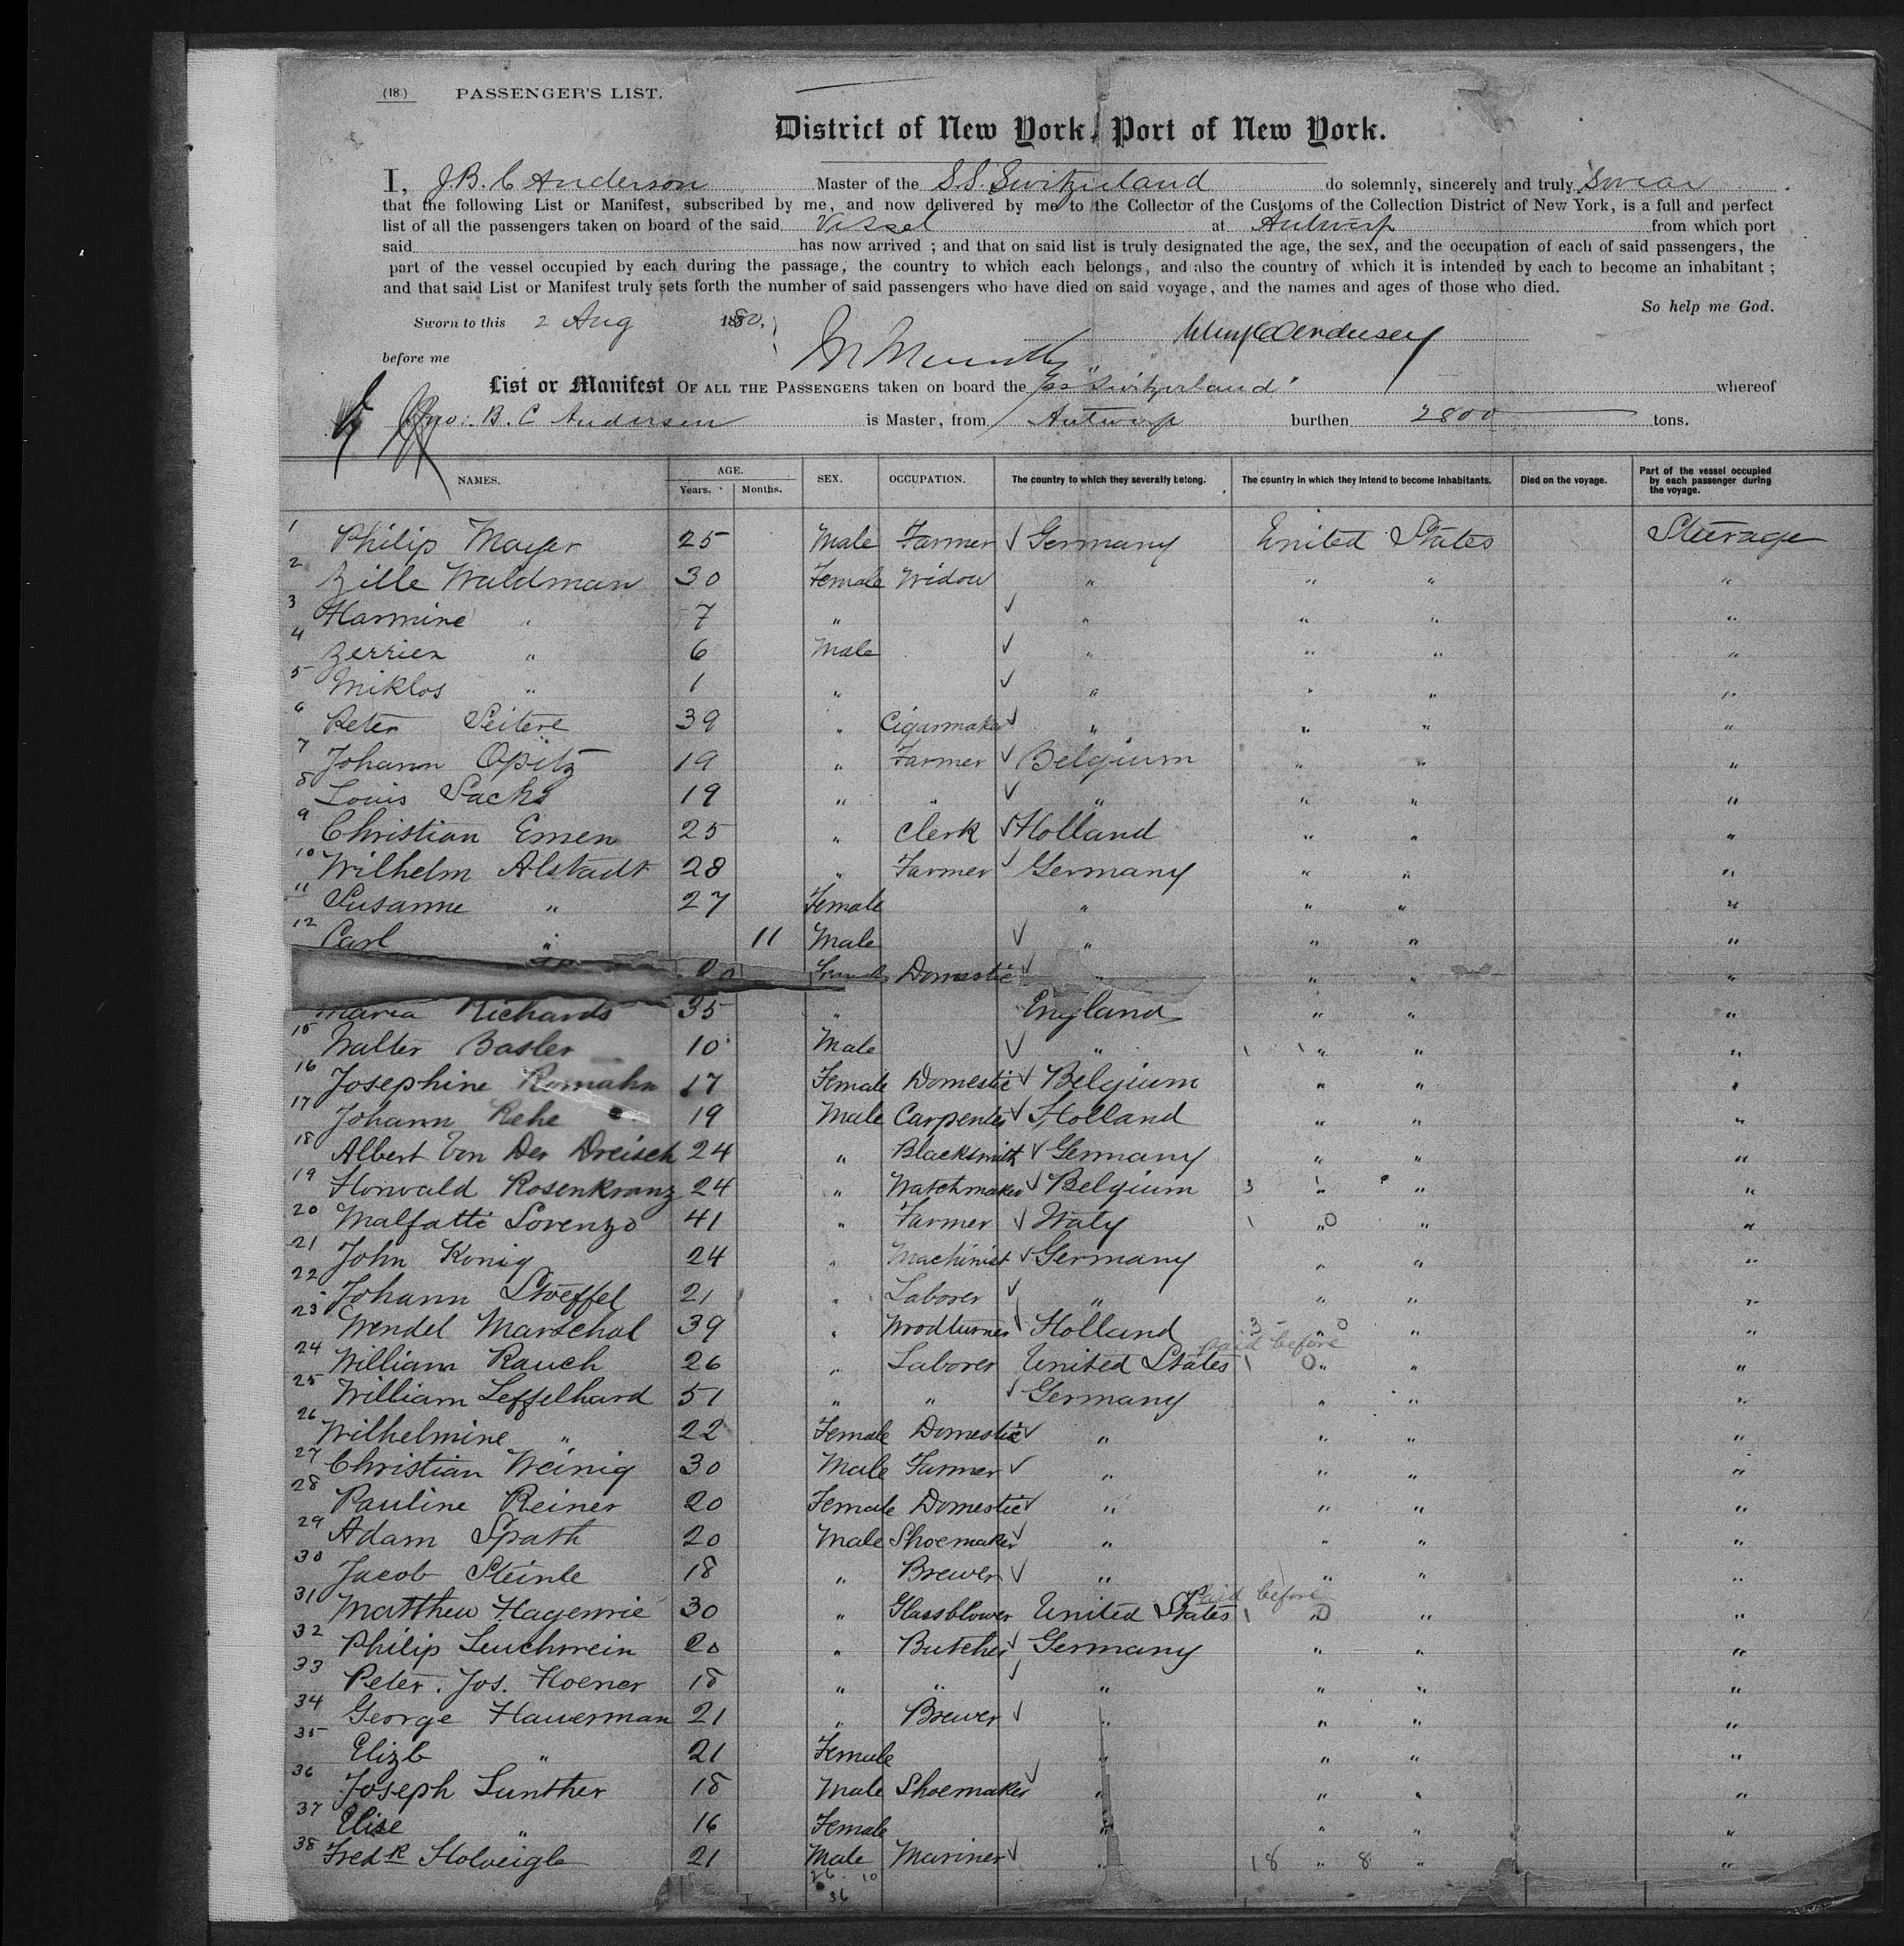 (18.) PASSENGER'S LIST.
District of New York, Port of New York.
I, J.B. C Anderson Master of the S.S. Switzerland do solemnly, sincerely and truly Swear
that the following List or Manifest, subscribed by me, and now delivered by me to the Collector of the Customs of the Collection District of New York, is a full and perfect
list of all the passengers taken on board of the said Vessel at Antwerp from which port
said has now arrived ; and that on said list is truly designated the age, the sex, and the occupation of each of said passengers, the
part of the vessel occupied by each during the passage, the country to which each belongs, and also the country of which it is intended by each to become an inhabitant ;
and that said List or Manifest truly sets forth the number of said passengers who have died on said voyage, and the names and ages of those who died.
So help me God.
Sworn to this 2 Aug 1880,
before me
List or Manifest OF ALL THE PASSENGERS taken on board the "Switzerland" whereof
Jno: B. C Andersen is Master, from Antwerp burthen 2800 tons.
NAMES. AGE. Years. Months. SEX. OCCUPATION. The country to which they severally belong. The country in which they intend to become inhabitants. Died on the voyage. Part of the vessel occupied by each passenger during the voyage.
1 Philip Mayer 25 Male Farmer ✓ Germany United States Steerage
2 Zille Waldman 30 Female Widow " " " "
3 Harmine " 7 " ✓ " " " "
4 Zerrien " 6 Male ✓ " " " "
5 Miklos " 1 " ✓ " " " "
6 Peter Seitere 39 " Cigarmaker ✓ " " " "
7 Johann Opitz 19 " Farmer ✓ Belgium " " "
8 Louis Sachs 19 " " ✓ " " " "
9 Christian Emen 25 " Clerk ✓ Holland " " "
10 Wilhelm Alstadt 28 " Farmer ✓ Germany " " "
11 Susanne " 27 Female " " " "
12 Carl " 11 Male ✓ " " " "
Domestic ✓ " " "
Maria Richards 35 " England " " "
15 Walter Basler 10 Male ✓ " " " "
16 Josephine Romahn 17 Female Domestic ✓ Belgium " " "
17 Johann Rehe 19 Male Carpenter ✓ Holland " " "
18 Albert Von Der Dreisch 24 " Blacksmith ✓ Germany " " "
19 Horwald Rosenkranz 24 " Watchmaker ✓ Belgium 3 " " "
20 Malfatti Lorenzo 41 " Farmer ✓ Italy " 0 " "
21 John Konig 24 " Machinist ✓ Germany " " "
22 Johann Stoeffel 21 " Laborer ✓ " " " "
23 Wendel Marschal 39 " Woodturner ✓ Holland 3 " 0 " "
paid before
24 William Rauch 26 " Laborer United States 1 0 " " "
25 William Leffelhard 51 " " ✓ Germany " " "
26 Wilhelmine " 22 Female Domestic ✓ " " " "
27 Christian Weinig 30 Male Farmer ✓ " " " "
28 Pauline Reiner 20 Female Domestic ✓ " " " "
29 Adam Spath 20 Male Shoemaker ✓ " " " "
30 Jacob Steinle 18 " Brewer ✓ " " " "
Paid before
31 Matthew Hagenrie 30 " Glassblower United States 1 " 0 " "
32 Philip Leuchwein 20 " Butcher ✓ Germany " " "
33 Peter. Jos. Hoener 18 " " ✓ " " " "
34 George Hauerman 21 " Brewer ✓ " " " "
35 Elizb " 21 Female " " " "
36 Joseph Lunther 18 Male Shoemaker ✓ " " " "
37 Elise " 16 Female " " " "
38 Fredk Holveigle 21 Male Mariner ✓ " 18 " 8 " "
26 10
36